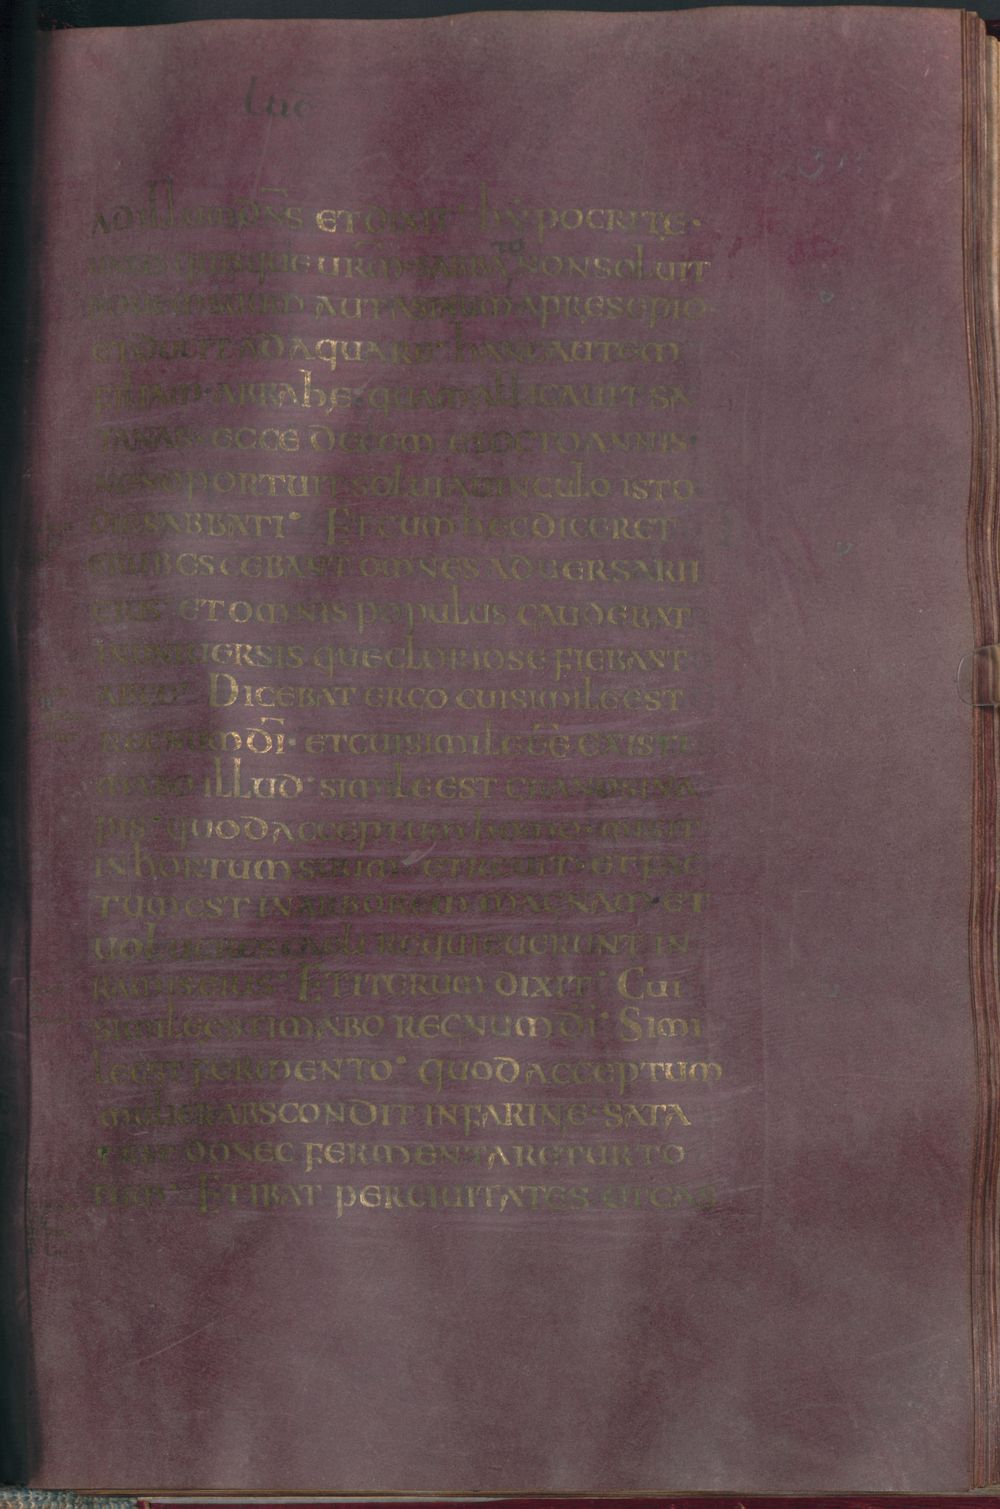 Luc
AD ILLUM DN̄S ET DIXIT · HYPOCRITE ·
UNUSQUISQUE UR̄M SABBATO NON SOLUIT
BOUEM SUUM AUT ASINUM A PRESEPIO ·
ET DUCIT ADAQUARE · HANC AUTEM
FILIAM ABRAHE · QUAM ALLIGAUIT SA
TANAS ECCE DECEM ET OCTO ANNIS ·
NON OPORTUIT SOLUI A UINCULO ISTO
DIE SABBATI · ET CUM HEC DICERET
ERUBESCEBANT OMNES ADUERSARII
EIUS · ET OMNIS POPULUS GAUDEBAT
IN UNIUERSIS QUE GLORIOSE FIEBANT
AB EO · DICEBAT ERGO CUI SIMILE EST
REGNUM DĪ · ET CUI SIMILE EE̅ EXISTI
MABO ILLUD · SIMILE EST GRANO SINA
PIS · QUOD ACCEPTUM HOMO MISIT
IN HORTUM SUUM · ET CREUIT · ET FAC
TUM EST IN ARBOREM MAGNAM · ET
UOLUCRES CAELI REQUIEUERUNT IN
RAMIS EIUS · ET ITERUM DIXIT · CUI
SIMILE ESTIMABO REGNUM DĪ · SIMI
LE EST FERMENTO · QUOD ACCEPTUM
MULIER ABSCONDIT IN FARINE · SATA
TRIA DONEC FERMENTARETUR TO
TUM · ET IBAT PER CIUITATES ET CAS